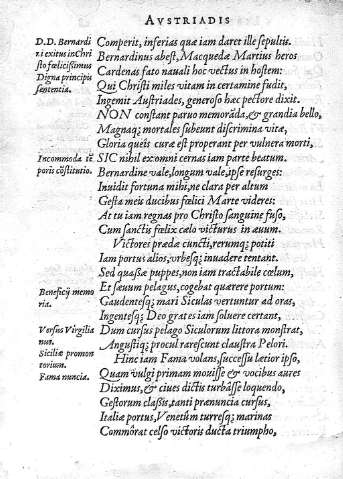 AVSTRIADIS
D.D. Bernardi
ni exitus in Chri
sto fœlicissimus
Digna principis
sententia.
Comperit, inferias quæ iam daret ille sepultis.
Bernardinus abest, Macquedæ Martius heros
Cardenas fato nauali hoc vectus in hostem:
Qui Christi miles vitam in certamine fudit,
Ingemit Austriades, generoso hæc pectore dixit.
NON constant paruo memorãda, & grandia bello,
Magnaq; mortales subeunt discrimina vitæ,
Gloria queis curæ est properant per vulnera morti,
Incommoda tẽ
poris cõstitutio.
SIC nihil ex omni cernas iam parte beatum.
Bernardine vale, longum vale, ipse resurges:
Inuidit fortuna mihi, ne clara per altum
Gesta meis ducibus fœlici Marte videres:
At tu iam regnas pro Christo sanguine fuso,
Cum sanctis fœlix cælo victurus in æuum.
Victores præda cuncti, rerumq; potiti
Iam portus alios, vrbesq; inuadere tentant.
Sed quassæ puppes, non iam tractabile cœlum,
Beneficij memo
ria.
Et sæuum pelagus, cogebat quærere portum:
Gaudentesq; mari Siculas vertuntur ad oras,
Ingentesq; Deo grates iam soluere certant,
Versus Virgilia
nus.
Siciliæ promon
torium.
Fama nuncia.
Dum cursus pelago Siculorum littora monstrat,
Angustiq; procul rarescunt claustra Pelori.
Hinc iam Fama volans, successu lætior ipso,
Quam vulgi primam mouisse & vocibus aures
Diximus, & ciues dictis turbâsse loquendo,
Gestorum classis, tanti prænuncia cursus,
Italiæ portus, Venetûm turresq; marinas
Commôrat celso victoris ducta triumpho,